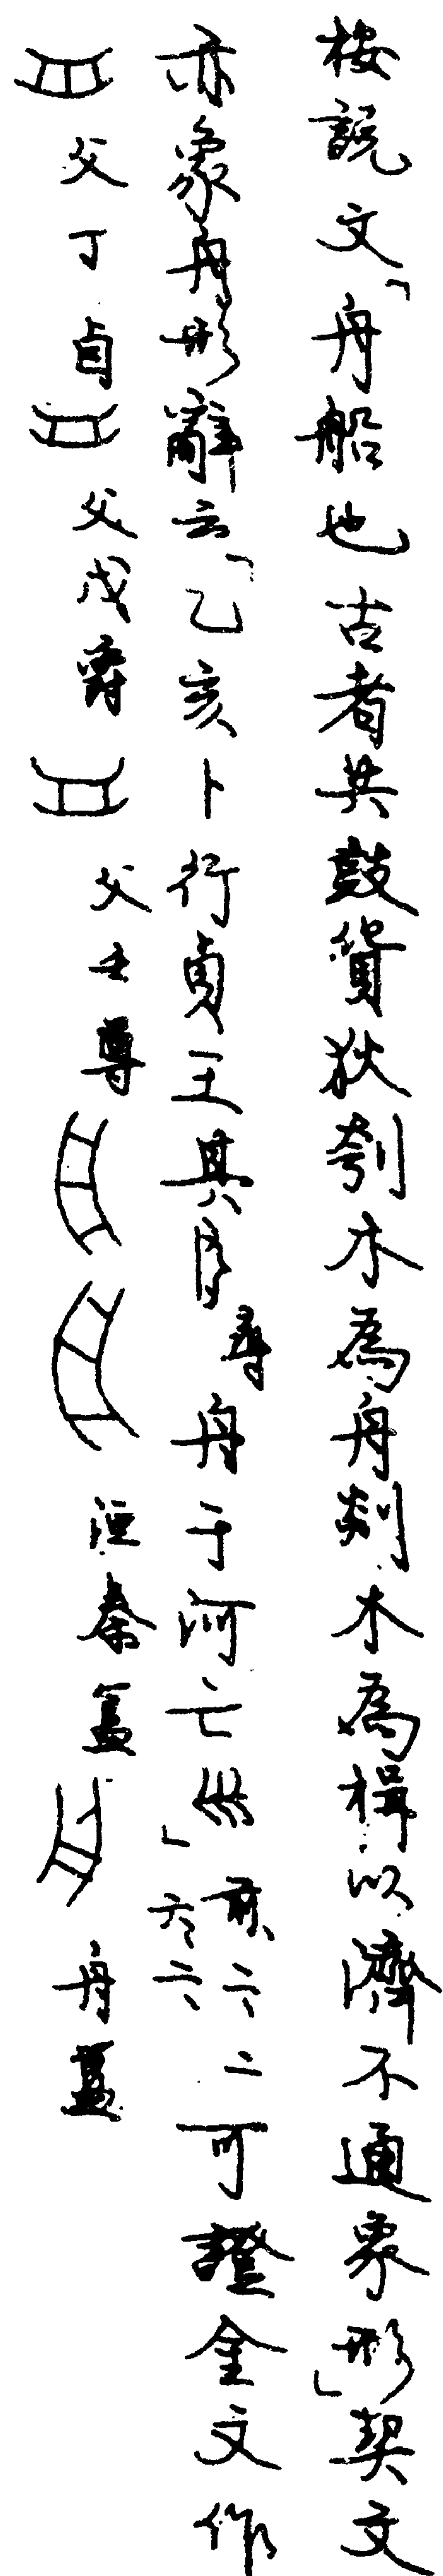 桉説文「舟船也古者共鼓貨狄刳木為舟剡木為楫以濟不通象形」契文
亦象舟形辭云「乙亥卜行貞王其尋舟于河亡𡿧」前二六二可證金文作
父丁卣父戊爵父壬尊洹秦簋舟簋